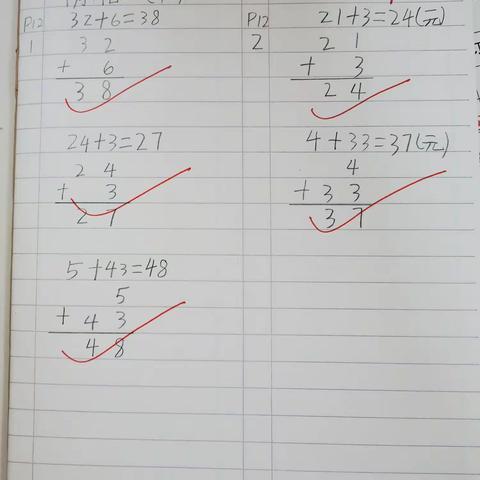 P12 32+6=38
1 3 2
+ 6
3 8
24+3=27
2 4
+ 3
2 7
5+43=48
5
+ 4 3
4 8
P12 21+3=24(元)
2 2 1
+ 3
2 4
4+33=37(元)
4
+ 3 3
3 7